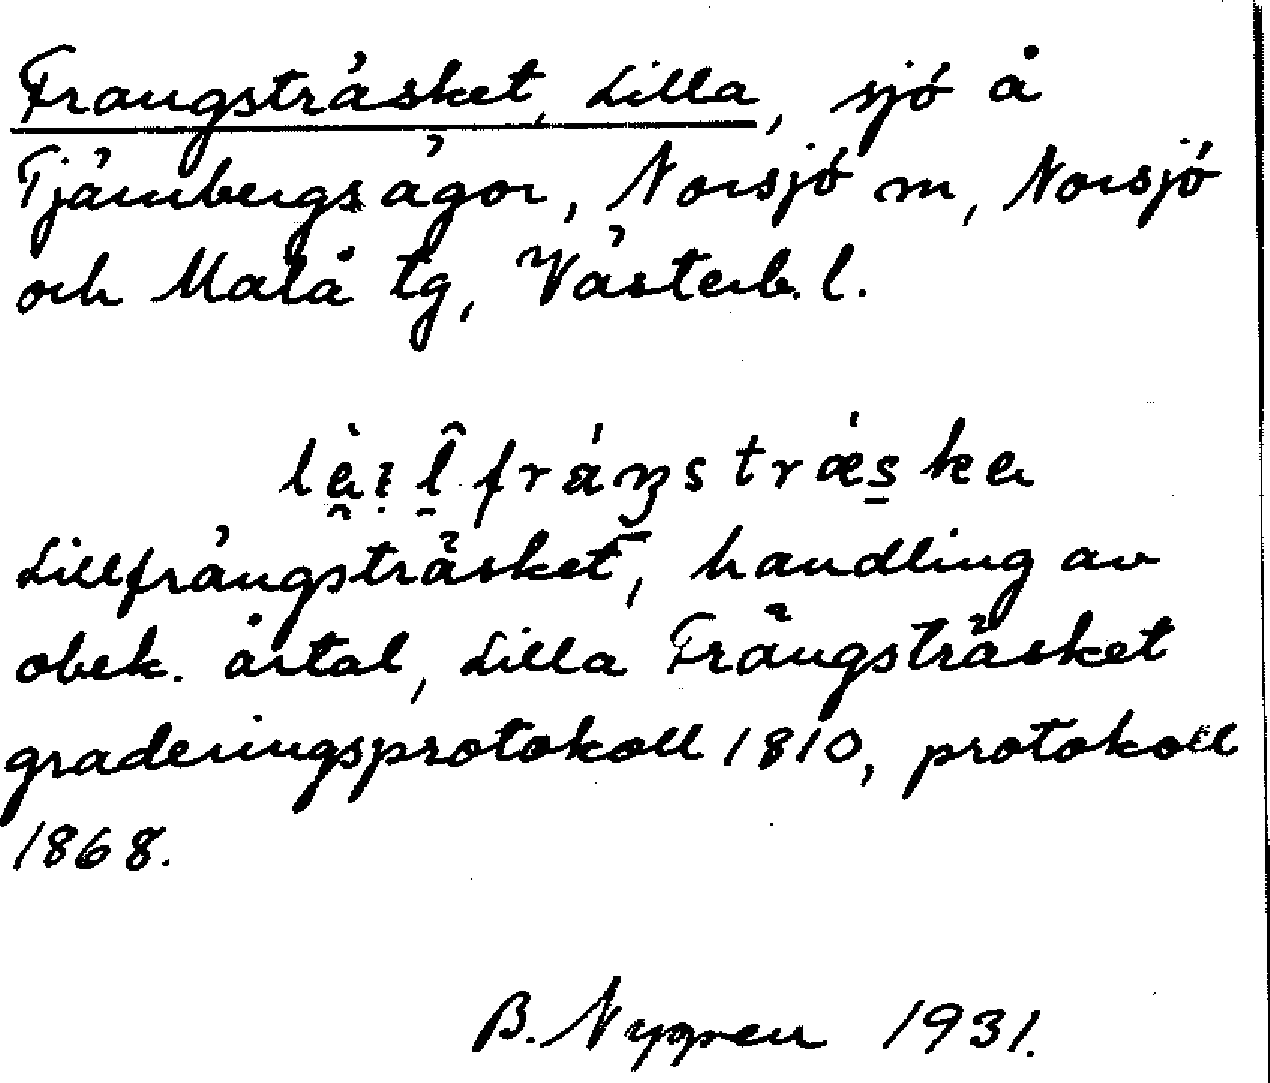 Frangsträsket, Lilla, sjö å
Tjärnbergs ägor, Norsjö sn, Norsjö
och Malå tg, Västerb. l.
Lillfrångsträsket, handling av
obek. årtal, Lilla Frängsträsket
graderingsprotokoll 1810, protokoll
1868.
B. Nygren 1931.